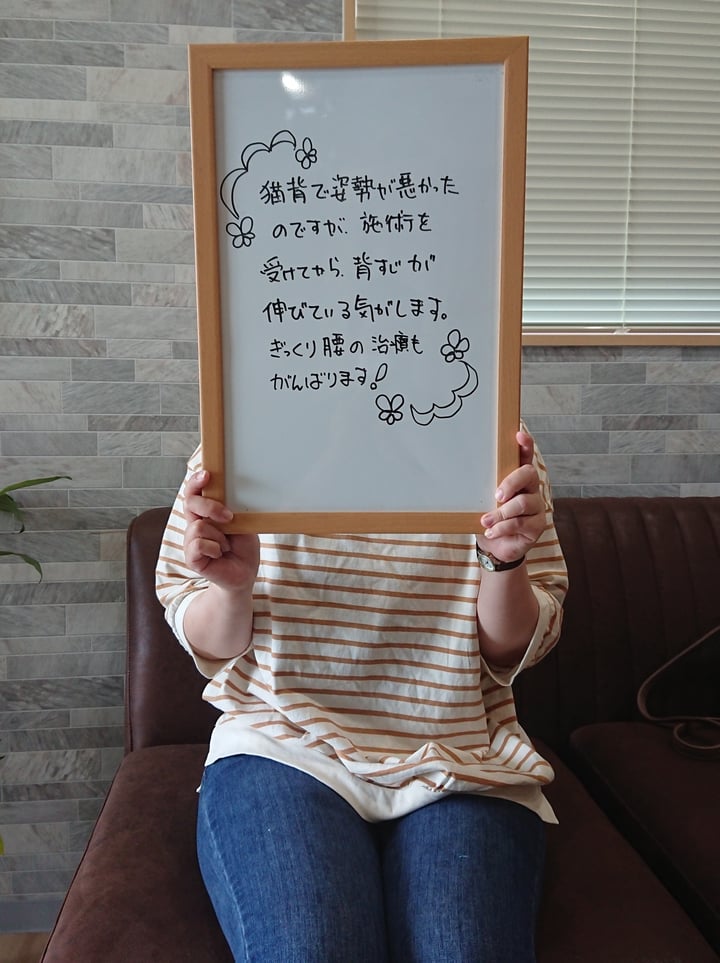 猫背で姿勢が悪かった
のですが、施術を
受けてから、背すじが
伸びている気がします。
ぎっくり腰の治療も
がんばります!